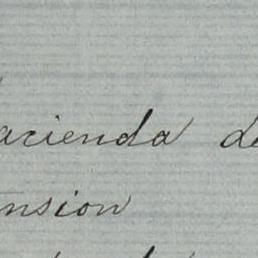 acienda de
ension